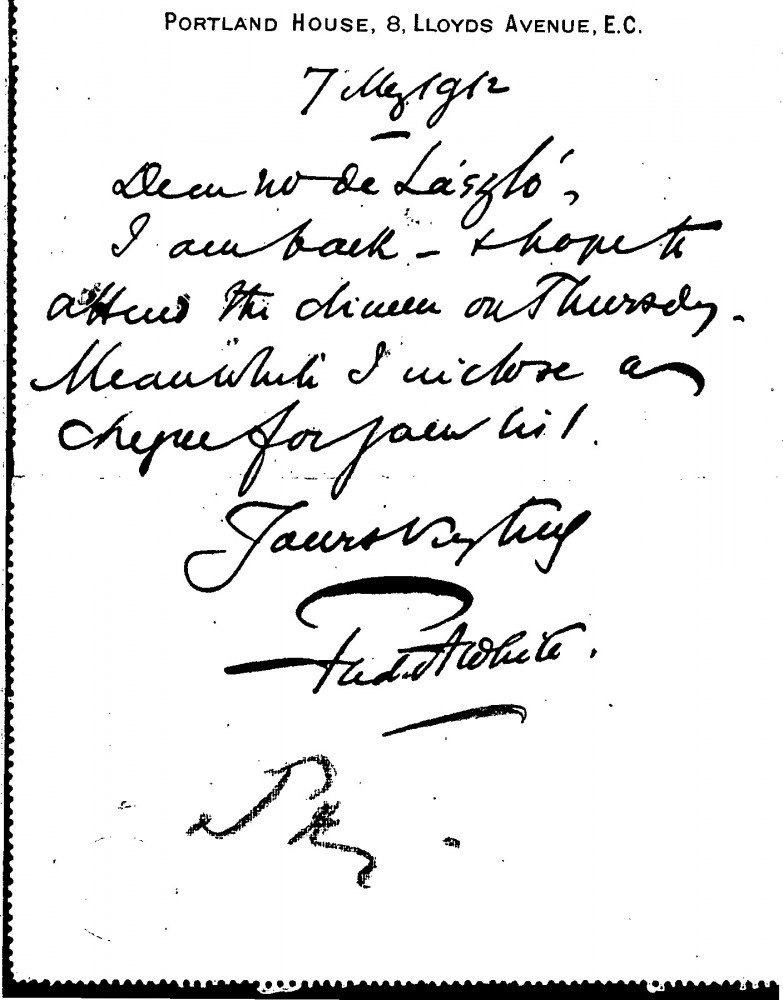 PORTLAND HOUSE, 8, LLOYDS AVENUE, E.C.
7 May 1912
Dear Mr de László,
I am back – & hope to
attend the dinner on Thursday.
Meanwhile I inclose a
cheque for your list.
Yours very truly
Fred. A White.